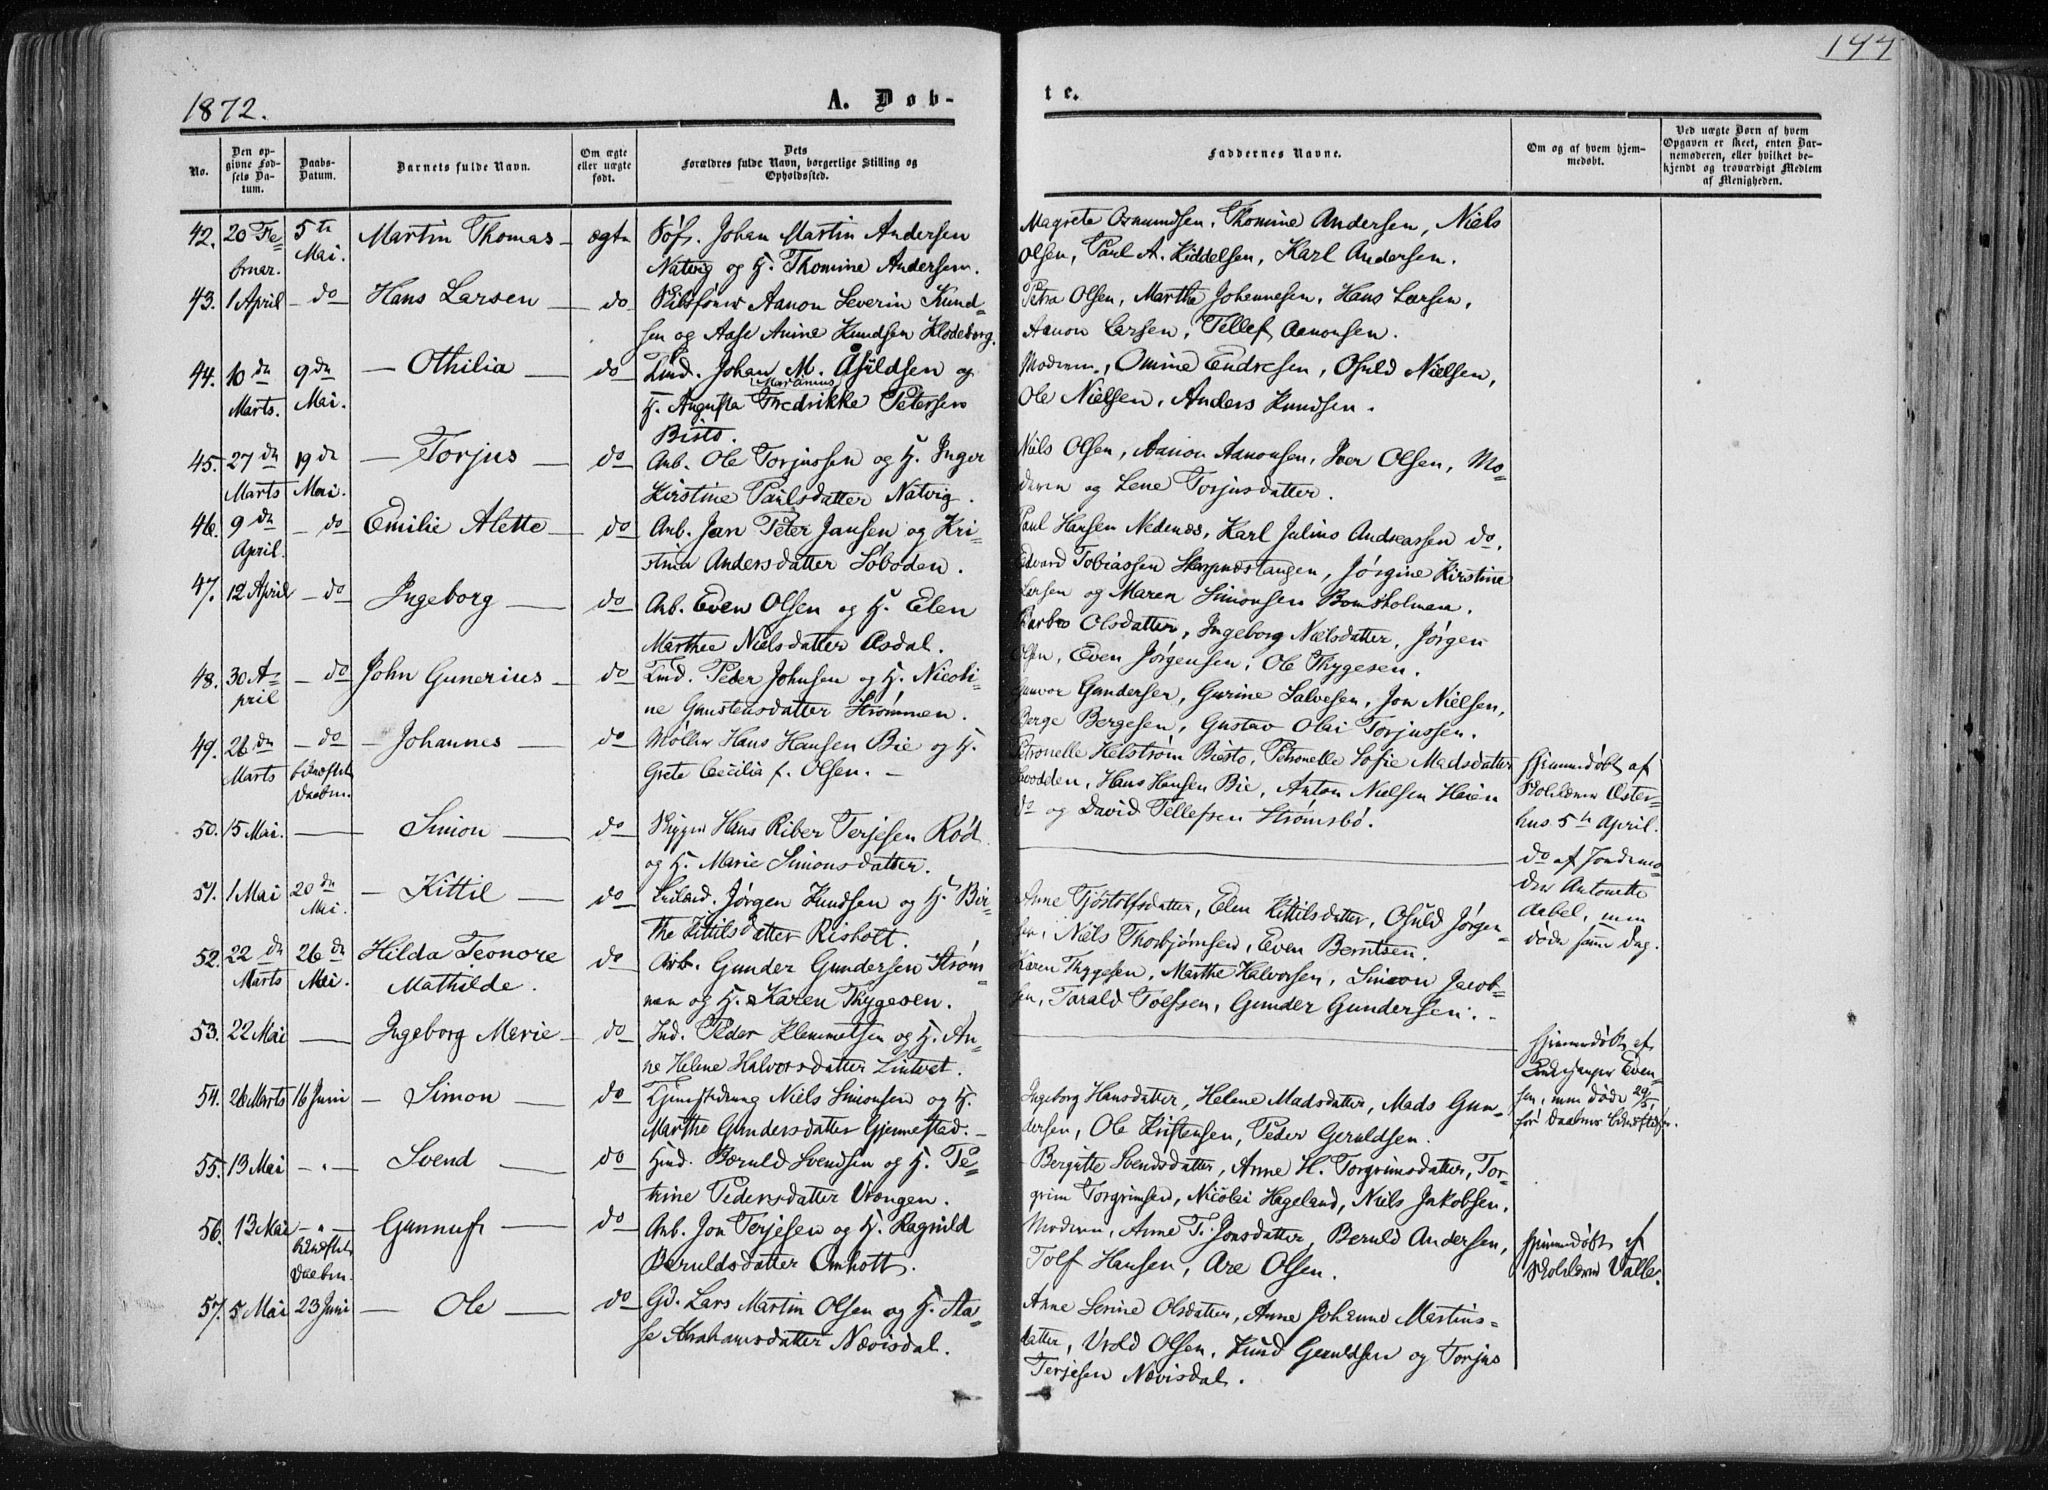 1872.
A. Døb-
te.
144
No.
Den op-
givne Fød-
sels Da-
tum.
Daabs-
Datum.
Barnets fulde Navn.
Om ægte
eller uægte
født.
Dets
Forældres fulde Navn, borgerlige Stilling og
Opholdssted.
Faddernes Navne.
Om og af hvem hjem-
medøbt.
Ved uægte Børn af hvem
Opgaven er skeet, enten Bar-
nemoderen, eller hvilket be-
kjendt og troværdigt Medlem
af Menigheden.
42. 20 Fe- 5te Martin Thomas ægte Søf. Johan Martin Andersen
bruar. Mai. Natvig og H. Thomine Andersen.
Magrete Osmundsen, Thomine Andersen, Niels
Olsen, Paul A. Kiddelsen, Karl Andersen.
43. 1 April - do Hans Larsen - do Aanon Severin Knud-
sen og Aase Anine Knudsen Klodeborg.
Petra Olsen, Marthe Johannesen, Hans Larsen,
Aanon Larsen, Tellef Aanonsen.
44. 10de 9de - Othilia - do Ind. Johan M. Åsuldsen og
Marts. Mai. H. Augusta Marianus Fredrikke Petersen
Bisto.
Moderen, Omine Endresen, Osuld Nielsen,
Ole Nielsen, Anders Knudsen.
45. 27de 19de - Torjus - do Arb. Ole Torjussen og H. Inger
Marts Mai. Kirstine Paulsdatter Natvig.
Niels Olsen, Aanon Aanonsen, Iver Olsen, Mo-
deren og Lene Torjusdatter.
46. 9de - do Emilie Alette - do Arb. Jan Peter Jansen og Kri-
April. stine Andersdatter Søboden.
Paul Hansen Nedenæs, Karl Julius Andreassen do,
Edvard Tobiassen Skarpnæstangen, Jørgine Kirstine
Larsen og Maren Simonsen Bomsholmen.
47. 12 April - do Ingeborg - do Arb. Even Olsen og H. Elen
Marthea Nielsdatter Asdal.
Barbro Olsdatter, Ingeborg Nielsdatter, Jørgen
Olsen, Even Jørgensen, Ole Thygesen.
48. 30 A- - do John Gunerius - do Ind. Peder Johnsen og H. Nicoli-
pril ne Gunstensdatter Strømmen.
Gunvor Gundersen, Gurine Salvesen, Jon Nielsen,
Berge Bergesen, Gustav Olai Torjussen.
49. 26de - do - Johannes - do Møller Hans Hansen Bie og H.
Marts bekræftet Daaben. Grete Cecilia f. Olsen. -
Petronelle Helstrøm Bisto, Petronelle Sofie Madsdatter
Hans Hansen Bie, Anton Nielsen Heien
do og David Tellefsen Strømsbø.
hjemmedøbt af
Skolelærer Øster-
hus 5te April.
50. 15 Mai. - Simon - do Skipper Hans Riber Terjesen Rød
og H. Marie Simonsdatter.
do af Jordemo-
der Antonette
Aabel, men
døde samme Dag.
51. 1 Mai 20de Mai. - Kittil - do Jørgen Knudsen og H. Bir-
the Kittilsdatter Risholt.
Anne Tjostolfsdatter, Elen Kittilsdatter, Osuld Jørgen-
sen, Niels Thorbjørnsen, Even Berntsen.
52. 22de 26de Hilda Teonore do Arb. Gunder Gundersen Strøm-
Marts Mai. Mathilde. men og H. Karen Thygesen.
Karen Thygesen, Marthe Halvorsen, Simon Jacob-
sen, Tarald Tolfsen, Gunder Gundersen.
53. 22 Mai - Ingeborg Marie - do Ind. Peder Klemmetsen og H. An-
ne Helene Halvorsdatter Lintvet.
hjemmedøbt af
Even-
sen, men døde 29/5,
før Daabens bekræftelse.
54. 26 Marts 16 Juni - Simon - do Niels Simonsen og H.
Marthe Gundersdatter Gjennestad. -
Ingeborg Hansdatter, Helene Madsdatter, Mads Gun-
dersen, Ole Kristensen, Peder Geruldsen.
55. 13 Mai - " - Svend - do Beruld Svendsen og H. Pe-
trine Pedersdatter Vrengen.
Bergitte Svendsdatter, Anne H. Torgrimsdatter, Tor-
grim Torgrimsen, Nicolai Hageland, Niels Jakobsen.
56. 13 Mai - " - Gunnuf - do Arb. Jon Terjesen og H. Ragnild
bekræftet Daaben. Beruldsdatter Omholt.
Moderen, Anne T. Jonsdatter, Beruld Andersen,
Tolf Hansen, Are Olsen.
hjemmedøbt af
Skolelærer Valle.
57. 5 Mai 23 Juni - Ole - do Gd. Lars Martin Olsen og H. Aa-
se Abrahamsdatter Nævisdal.
Anne Serine Olsdatter, Anne Johanne Martins-
datter, Vrold Olsen, Knud Geruldsen og Torjus
Terjesen Nævisdal.